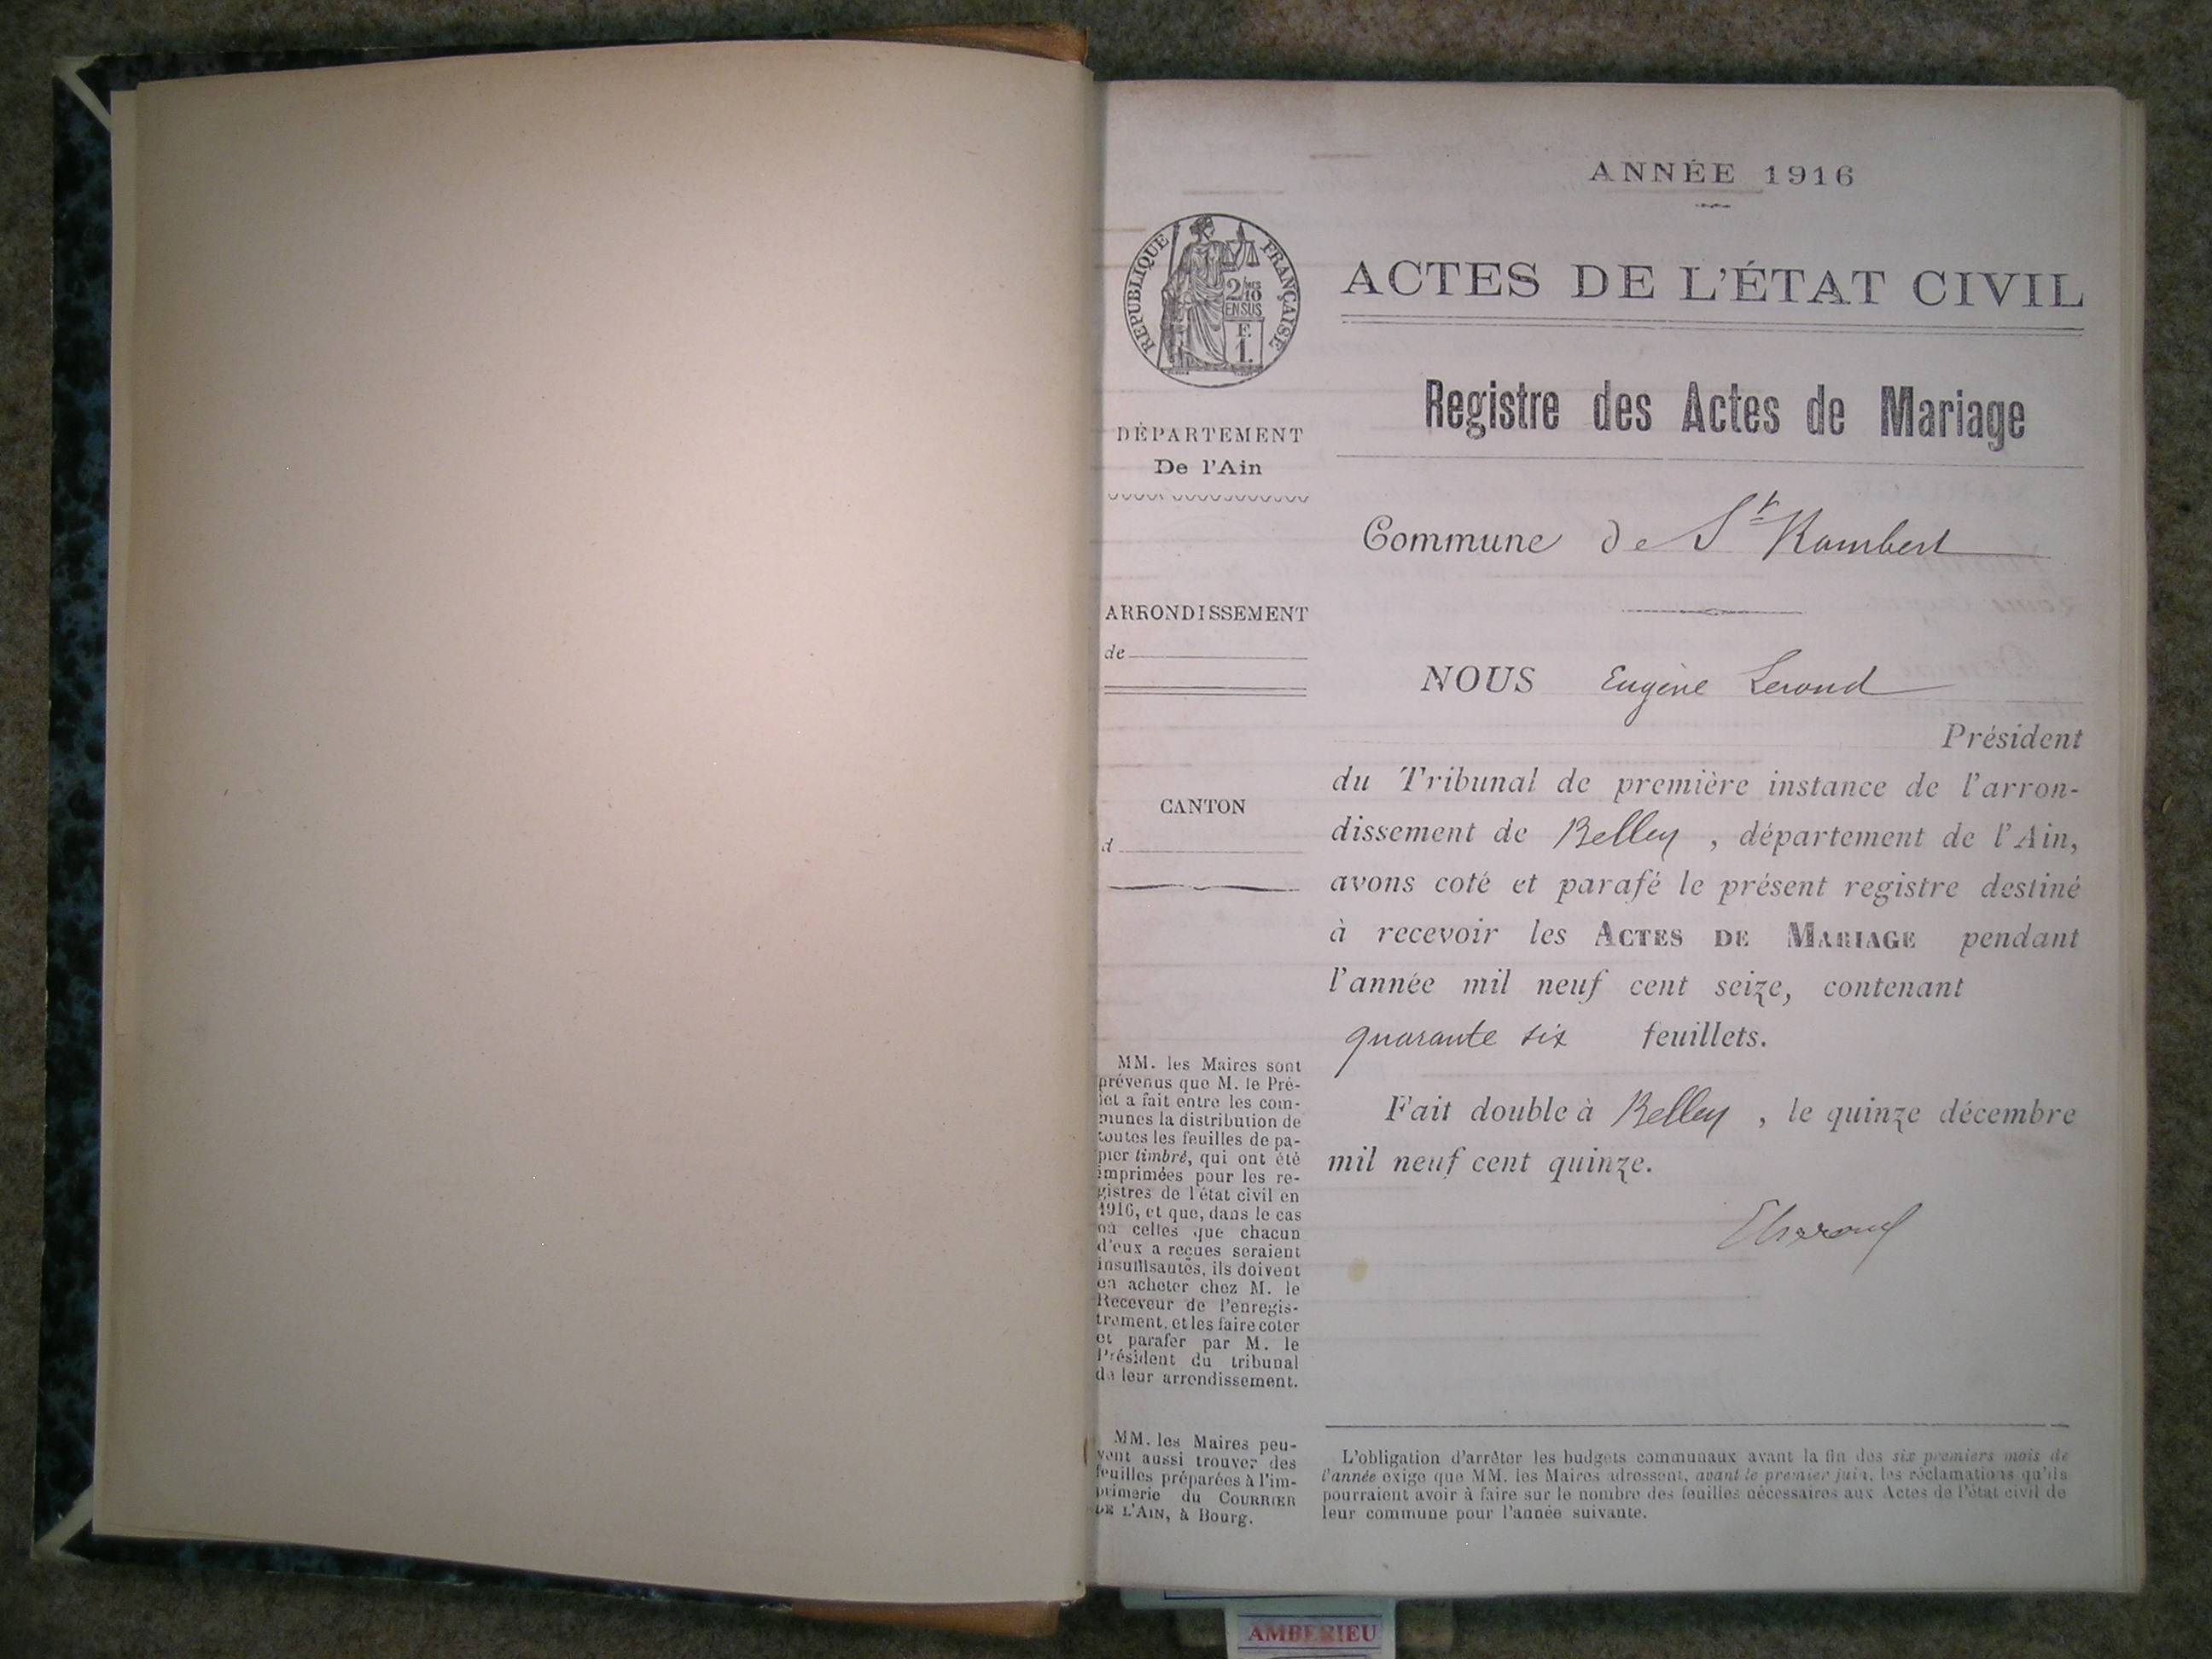 ANNÉE 1916
RÉPUBLIQUE FRANÇAISE
2/10
EN SUS
F.
1.
ACTES DE L'ÉTAT CIVIL
Registre des Actes de Mariage
DÉPARTEMENT
De l'Ain
Commune de St Rambert
ARRONDISSEMENT
de
CANTON
d
NOUS Eugène
Président
du Tribunal de première instance de l'arron-
dissement de Belley, département de l'Ain,
avons coté et parafé le présent registre destiné
à recevoir les ACTES DE MARIAGE pendant
l'année mil neuf cent seize, contenant
quarante six feuillets.
Fait double à Belley, le quinze décembre
mil neuf cent quinze.
MM. les Maires sont
prévenus que M. le Pré-
fet a fait entre les com-
munes la distribution de
toutes les feuilles de pa-
pier timbré, qui ont été
imprimées pour les re-
gistres de l'état civil en
1916, et que, dans le cas
où celles que chacun
d'eux a reçues seraient
insuffisantes, ils doivent
en acheter chez M. le
Receveur de l'enregis-
trement, et les faire coter
et parafer par M. le
Président du tribunal
de leur arrondissement.
MM. les Maires peu-
vent aussi trouver des
feuilles préparées à l'im-
primerie du COURRIER
DE L'AIN, à Bourg.
L'obligation d'arrêter les budgets communaux avant la fin des six premiers mois de
l'année exige que MM. les Maires adressent, avant le premier juin, les réclamations qu'ils
pourraient avoir à faire sur le nombre des feuilles nécessaires aux Actes de l'état civil de
leur commune pour l'année suivante.
AMBERIEU